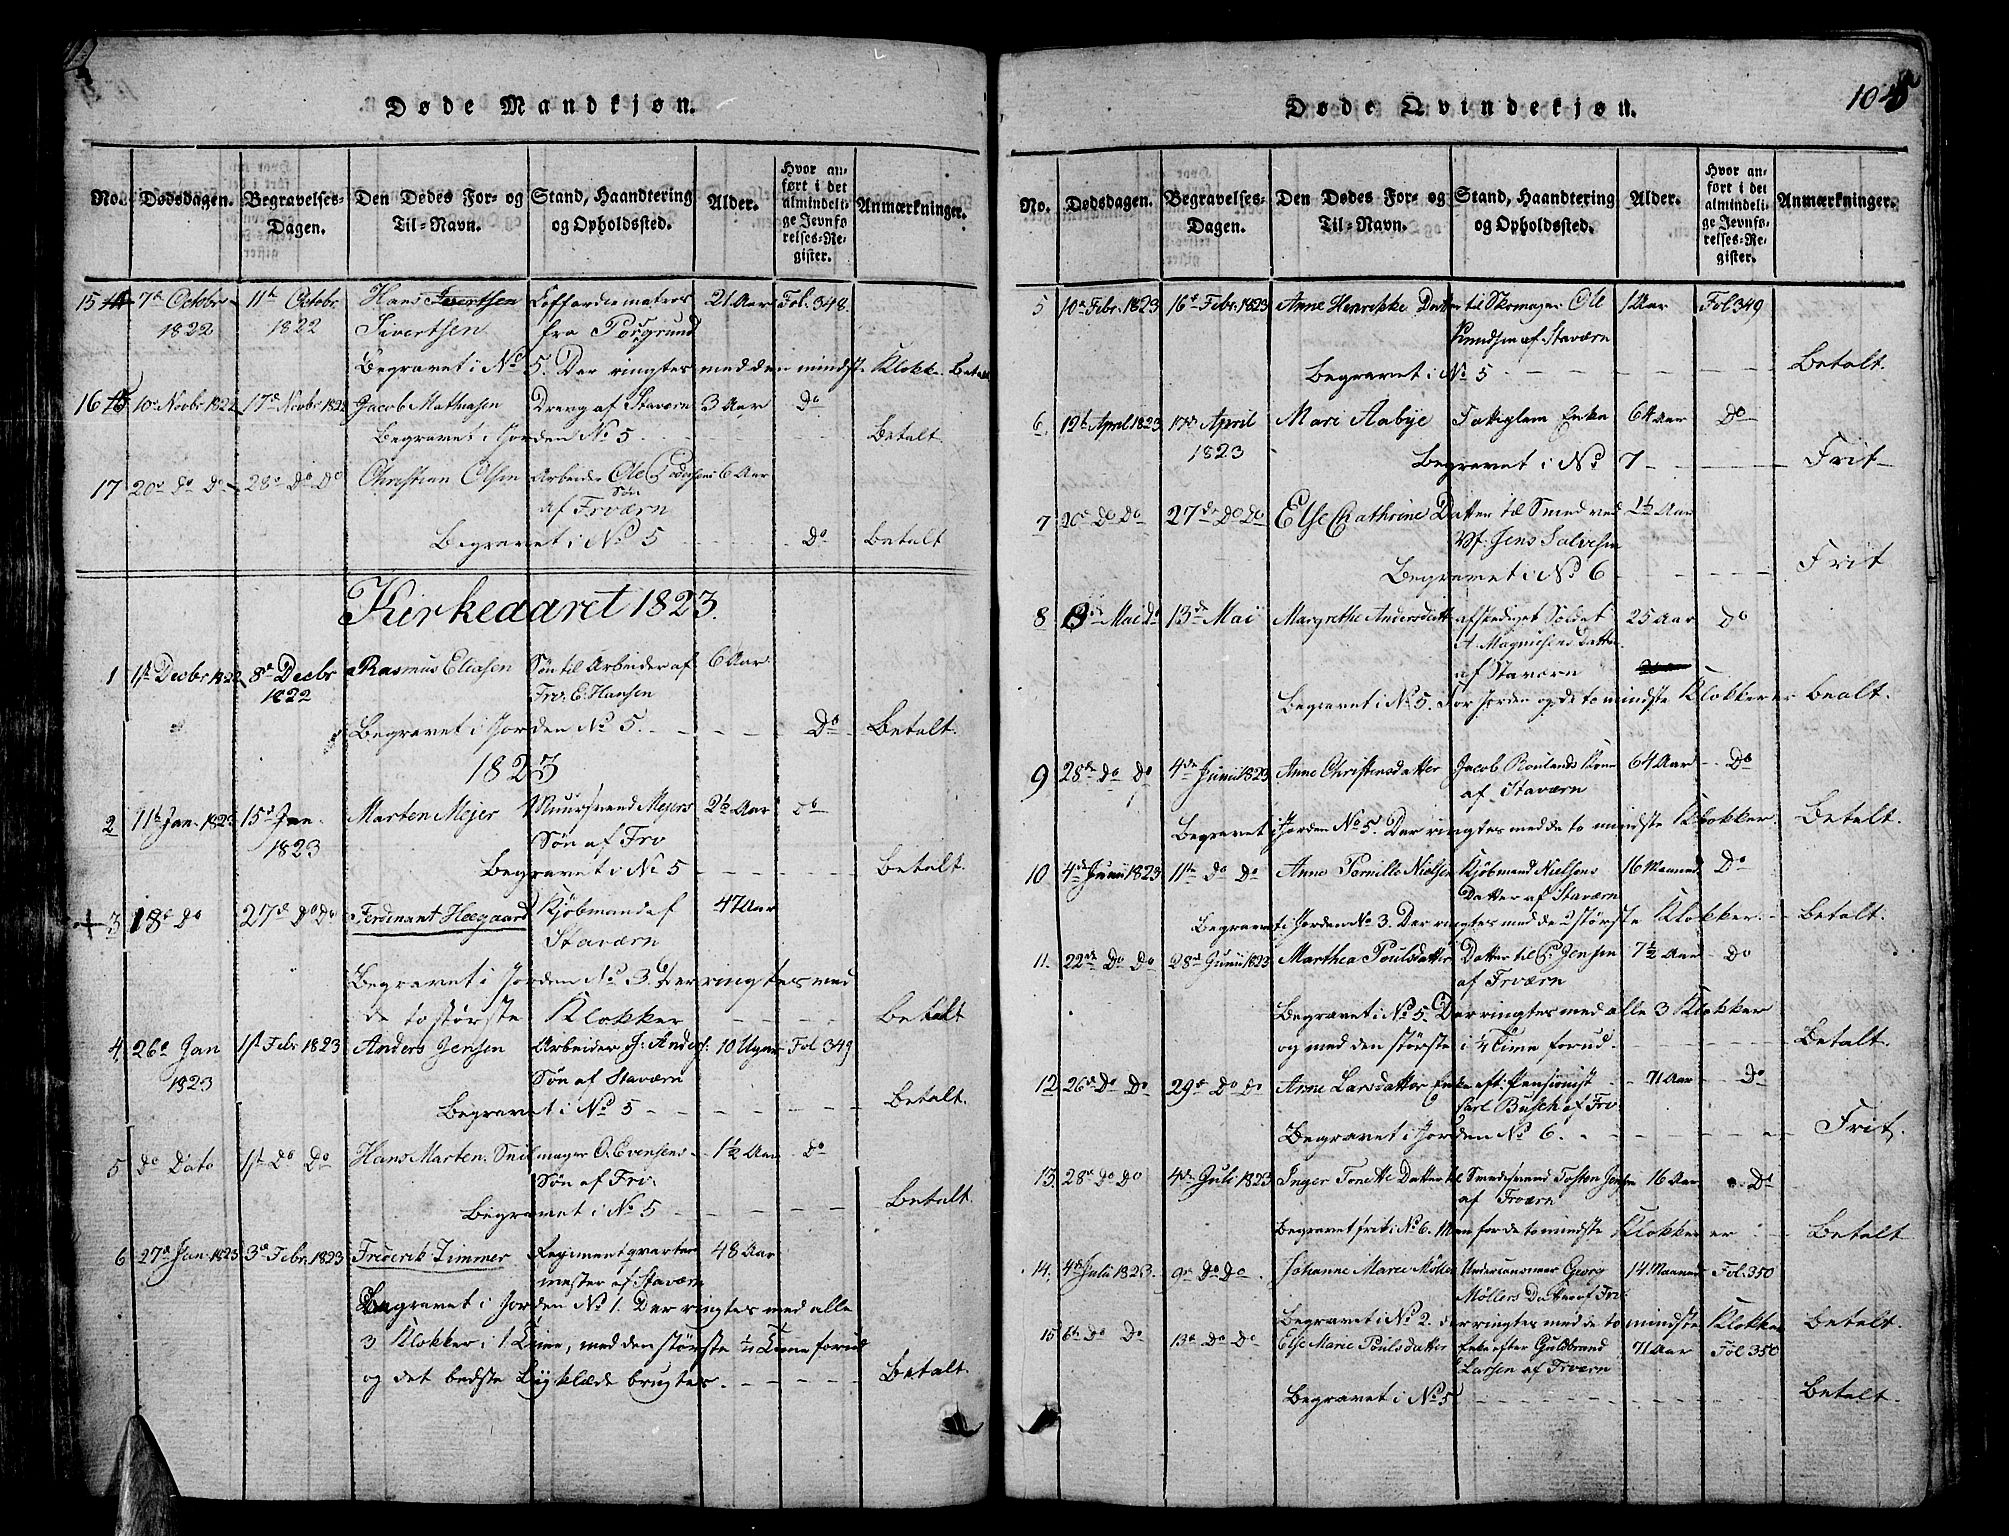 Døde Mandkjøn.
No. Dødsdagen. Begravelses-Dagen. Den Dødes For- og Til-Navn. Stand, Haandtering og Opholdssted. Alder. Hvor anført i det almindelige Jevnførelses-Register. Anmærkninger.
15 7de Octobr 1822 11te Octobr 1822 Hans Sivertsen Coffardiematros 21 Aar Fol. 348.
Sivertsen fra Porsgrund
Begravet i No 5. Der ringtes med den mindste Klokke. Betalt
16 10de Novbr 1822 17de Novbr 1822 Jacob Mathiasen Dreng af Staværn 3 Aar Do
Begravet i Jorden No 5 Betalt
17 20de Do Do 28de Do Do Christian Olsen Arbeider Ole Pedersens 6 Aar
Søn
af Frværn
Begravet i No 5 Do Betalt
Kirkeaaret 1823.
1 1ste Decbr 1822 8de Decbr 1822 Rasmus Eliasen Søn til Arbeider af 6 Aar
Frv. E. Hansen
Begravet i Jorden No 5. Do Betalt.
1823
2 11te Jan. 1823 15de Jan. 1823 Marten Mejer Muursvend Mejers 2½ Aar Do
Søn af Frv
Begravet i No 5 Betalt.
+ 3 18de Do 27de Do Do Ferdinant Heegaard Kjøbmand af 47 Aar
Staværn
Begravet i Jorden No 3. Der ringtes med
de to største Klokker Betalt
4 26de Jan 1823 1ste Febr 1823 Anders Jensen Arbeider J. Anders: 10 Uger Fol 349
Søn af Staværn
Begravet i No 5 Betalt.
5 Do Dato 1ste Do Do Hans Marten. Seilmager O. Evensens 1½ Aar Do
Søn af Frv.
Begravet i No 5 Betalt
6 27de Jan. 1823 3de Febr. 1823 Frederik Zimmer Regimentqvarteer 48 Aar
mester af Staværn
Begravet i Jorden No 1. Der ringtes med alle
3 Klokker i 1 Time, med den største ½ Time forud
og det bedste Liigklæde brugtes. Betalt.
Døde Qvindekjøn. 105
No. Dødsdagen. Begravelses-Dagen. Den Dødes For- og Til-Navn. Stand, Haandtering og Opholdssted. Alder. Hvor anført i det almindelige Jevnførelses-Register. Anmærkninger.
5 10de Febr. 1823 16de Febr. 1823 Anne Henrikke Datter til Skomager Ole 1 Aar Fol 349
Knudsen af Staværn
Begravet i No 5 Betalt.
6 12te April 1823 17de April 1823 Mari Aabye Fattiglem Enke 64 Aar Do
Begravet i No 7 Frit
7 20de Do Do 27de Do Do Else Cathrine Datter til Smed ved 1½ Aar
Vf. Jens Salvesen
Begravet i No 6 Frit
8 8de Mai Do 13de Mai Margrethe Andersdatt afskediget Soldat 25 Aar Do
A. Magnusens Datter
af Staværn
Begravet i No 5. For Jorden og de to mindste Klokker er bealt.
9 28de Do Do 4de Junii 1823 Anne Christensdatter Jacob Roulands Kone 64 Aar Do
af Staværn
Begravet i Jorden No 5. Der ringtes med de to mindste Klokker. Betalt.
10 4de Junii 1823 11te Do Do Anne Pernille Nielsen Kjøbmand Nielsens 16 Maaned Do
Datter af Staværn
Begravet i Jorden No 3. Der ringtes med de 2 største Klokker. Betalt.
11. 22de Do Do 28de Junii 1823 Marthea Poulsdatter Datter til P. Jensen 7½ Aar Do
af Frværn
Begravet i No 5. Der ringtes med alle 3 Klokker
og med den største i ½ Time forud. Betalt.
12 26de Do Do 29de Do Do Anne Larsdatter Enke eft. Pensionist 71 Aar Do
Carl Busch af Frv.
Begravet i Jorden No 6. Frit.
13. 28de Do Do 4de Juli 1823 Inger Tonette Datter til Smedesvend Tosten Jensen 16 Aar Do
af Frværn
Begravet frit i No 6. Men for de to mindste Klokker er Betalt
14. 4de Julii 1823. 9de Do Do. Johanne Marie Møller Underkanoneer Georg 14 Maaned Fol. 350
Møllers Datter af Frv.
Begravet i No 2. der ringtes med de to mindste Klokker Betalt.
15 6te Do Do 13de Do Do Else Marie Poulsdatter Enke efter Guldbrand 71 Aar Fol 350
Larsen af Frværn
Begravet i No 5 Betalt.